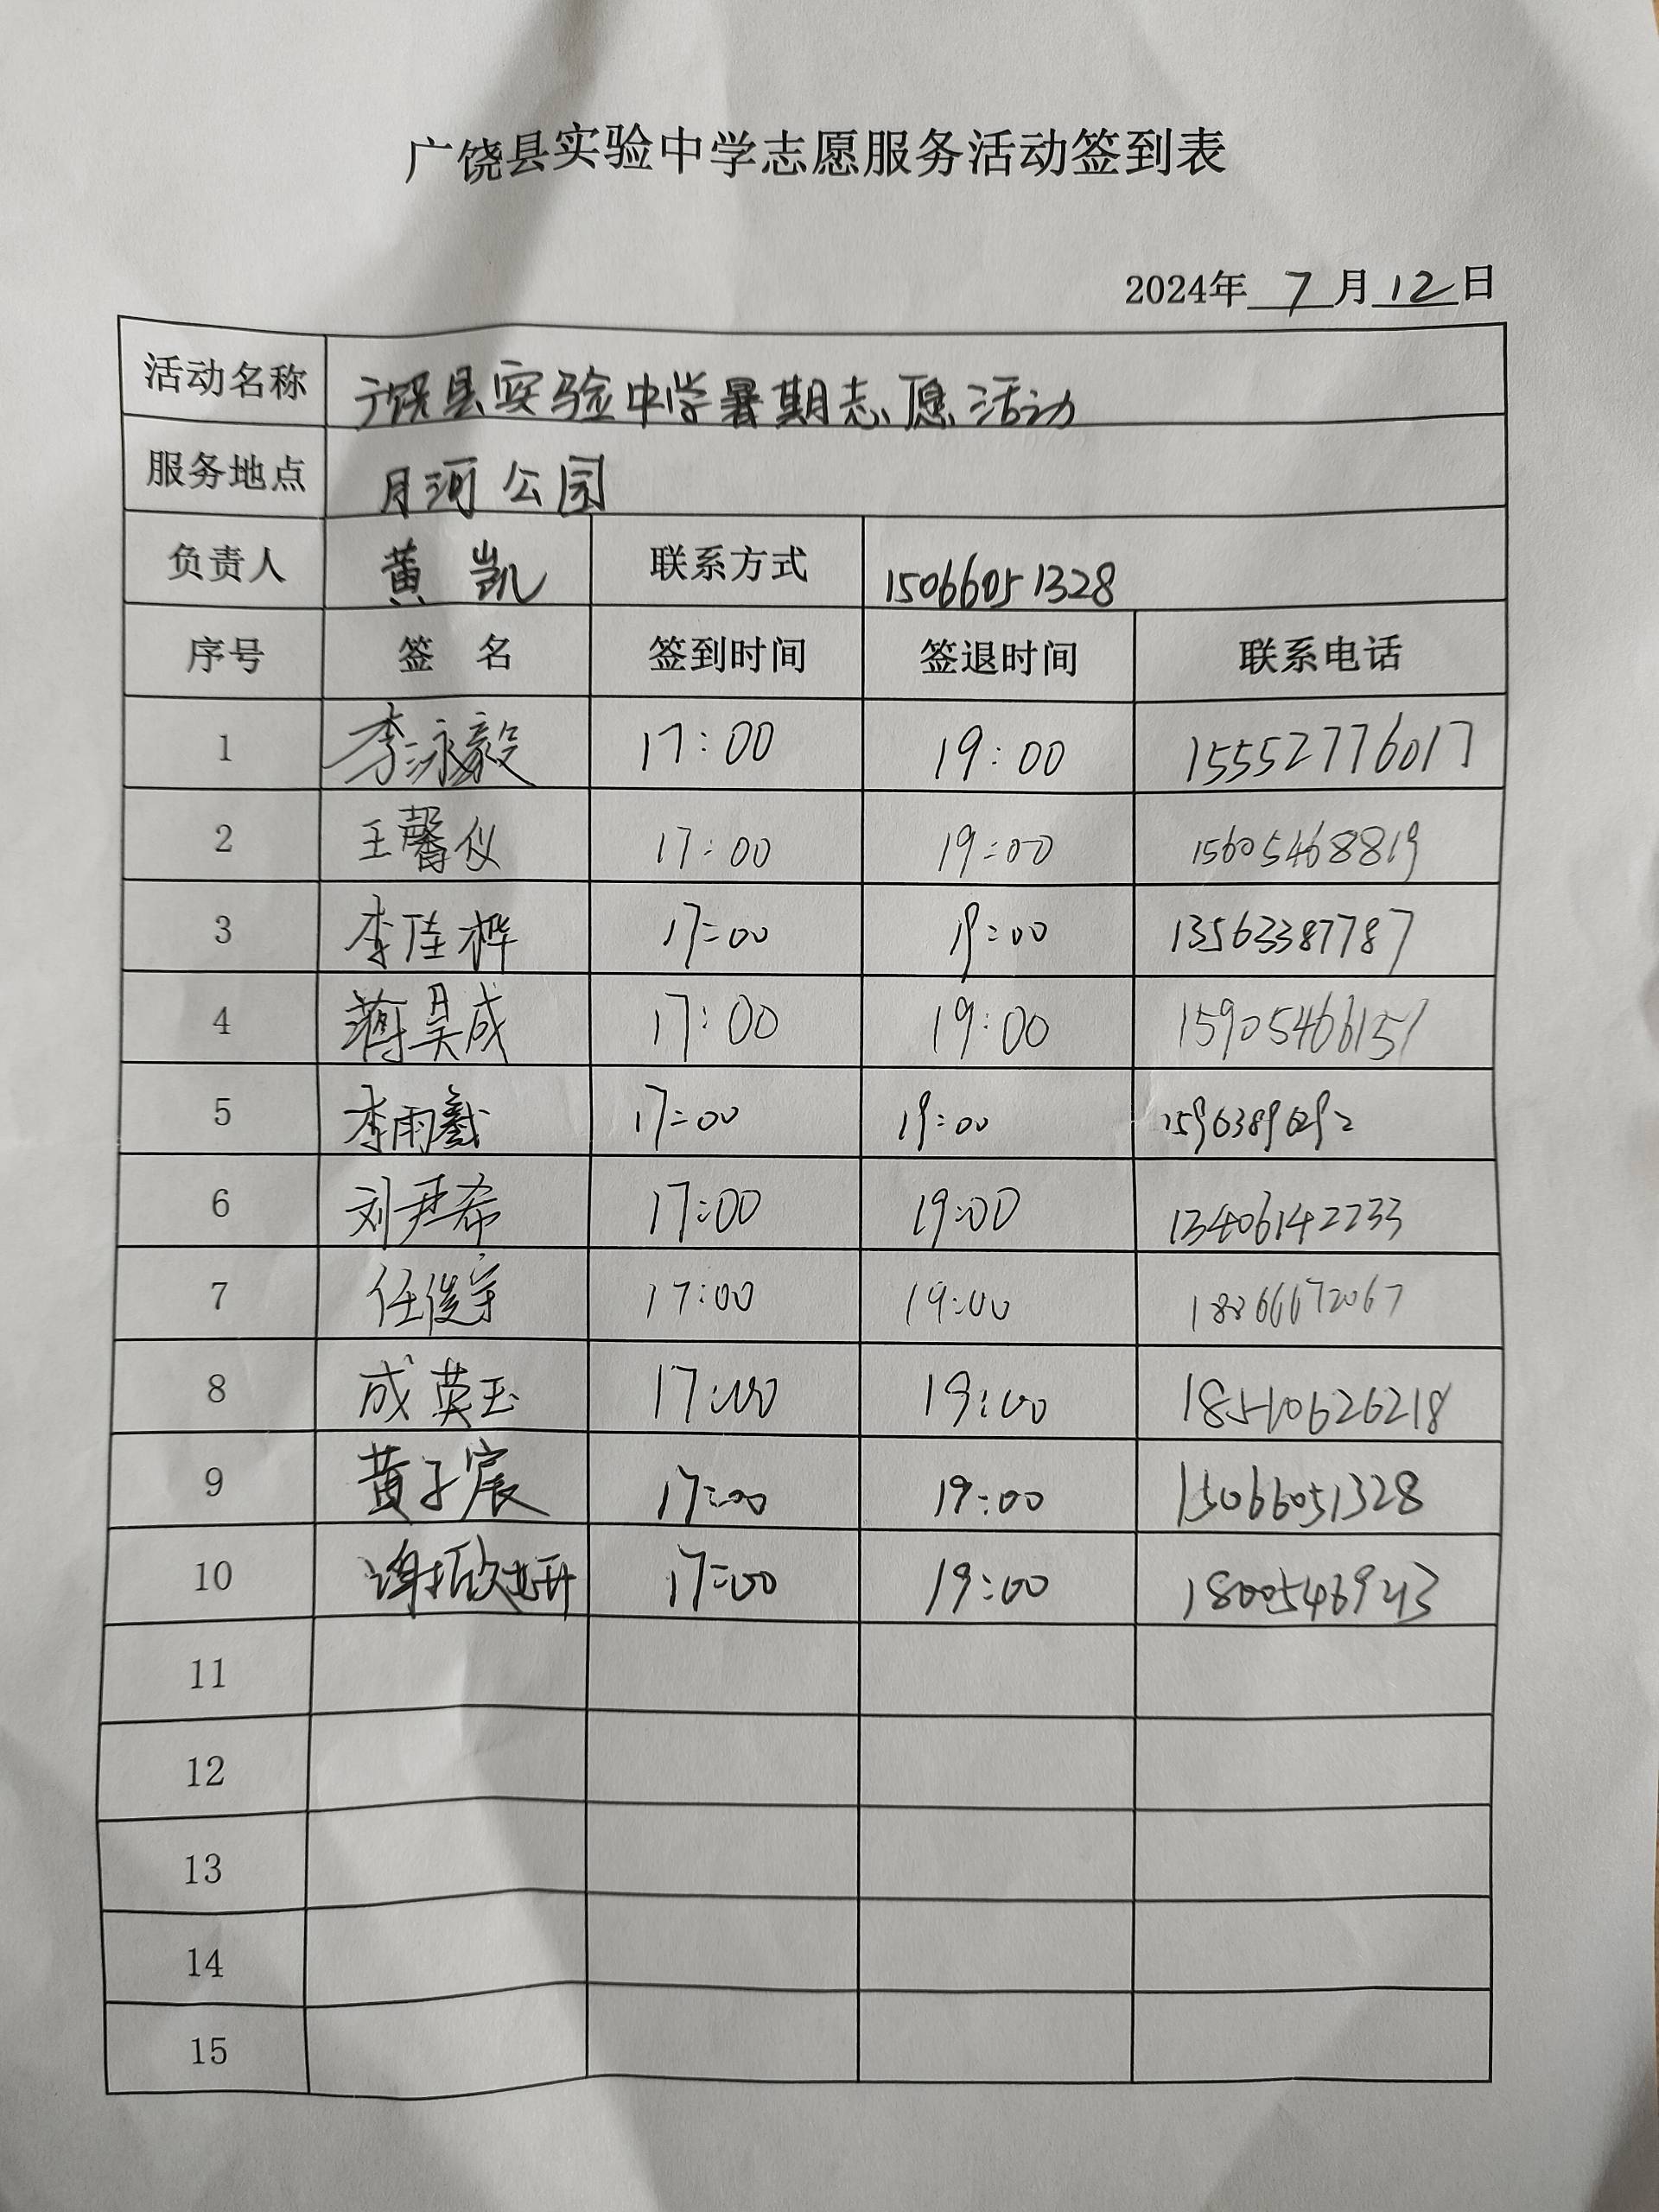 广饶县实验中学志愿服务活动签到表
2024年 7 月 12 日
活动名称 广饶县实验中学暑期志愿活动
服务地点 月河公园
负责人 黄凯 联系方式 15066051328
序号 签 名 签到时间 签退时间 联系电话
1 李泳毅 17:00 19:00 15552776017
2 王馨仪 17:00 19:00 15605468819
3 李佳桦 17:00 19:00 13563387787
4 蒋昊成 17:00 19:00 15905466151
5 李雨羲 17:00 19:00
6 刘尹希 17:00 19:00 13406142233
7 任俊宇 17:00 19:00 18866672067
8 成英玉 17:00 19:00 18510626218
9 黄子宸 17:00 19:00 15066051328
10 17:00 19:00
11
12
13
14
15